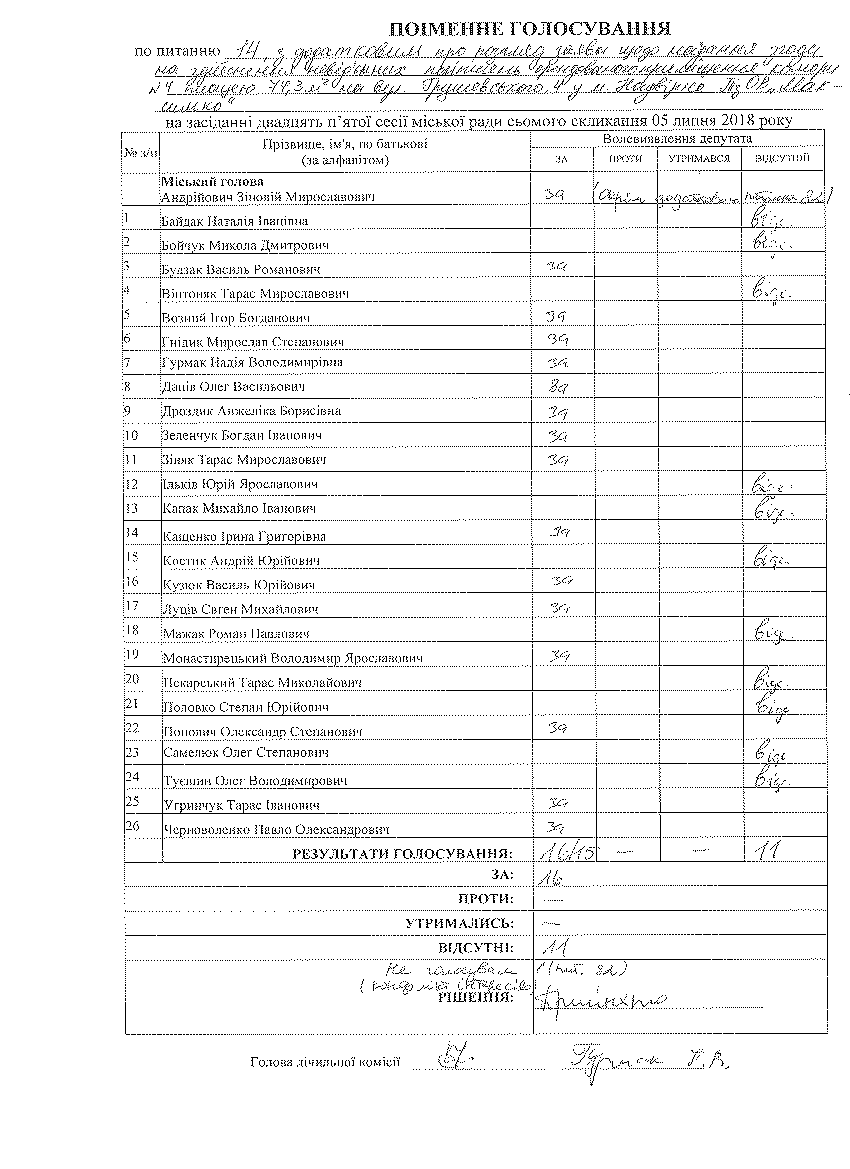 ПОІМЕННЕ ГОЛОСУВАННЯ
по питанню 14, з додатковим про розгляд заяви щодо надання згоди
на здійснення невід'ємних поліпшень орендованого приміщення
№4 площею 74,3 м² на вул. Грушевського, 4 у м. Надвірна ТзОВ „Мак-
симко"
на засіданні двадцять п'ятої сесії міської ради сьомого скликання 05 липня 2018 року
№ з/п Прізвище, ім'я, по батькові Волевиявлення депутата
(за алфавітом) ЗА ПРОТИ УТРИМАВСЯ ВІДСУТНІЙ
Міський голова
Андрійович Зіновій Мирославович за (Окрім додаткового питання 32)
1 Байдак Наталія Іванівна відс.
2 Бойчук Микола Дмитрович відс.
3 Будзак Василь Романович за
4 Вінтоняк Тарас Мирославович відс.
5 Возний Ігор Богданович за
6 Гнідик Мирослав Степанович за
7 Гурмак Надія Володимирівна за
8 Данів Олег Васильович за
9 Дроздик Анжеліка Борисівна за
10 Зеленчук Богдан Іванович за
11 Зіняк Тарас Мирославович за
12 Ільків Юрій Ярославович відс.
13 Капак Михайло Іванович відс.
14 Кащенко Ірина Григорівна за
15 Костик Андрій Юрійович відс.
16 Кузюк Василь Юрійович за
17 Луців Євген Михайлович за
18 Мажак Роман Павлович відс.
19 Монастирецький Володимир Ярославович за
20 Пекарський Тарас Миколайович відс.
21 Половко Степан Юрійович відс
22 Попович Олександр Степанович за
23 Самелюк Олег Степанович відс
24 Туєшин Олег Володимирович відс.
25 Угринчук Тарас Іванович за
26 Черноволенко Павло Олександрович за
РЕЗУЛЬТАТИ ГОЛОСУВАННЯ: 16/15 — — 11
ЗА: 16
ПРОТИ: —
УТРИМАЛИСЬ: —
ВІДСУТНІ: 11
Не голосували 1 (пит. 32)
(конфлікт інтересів)
РІШЕННЯ: Прийнято
Голова лічильної комісії